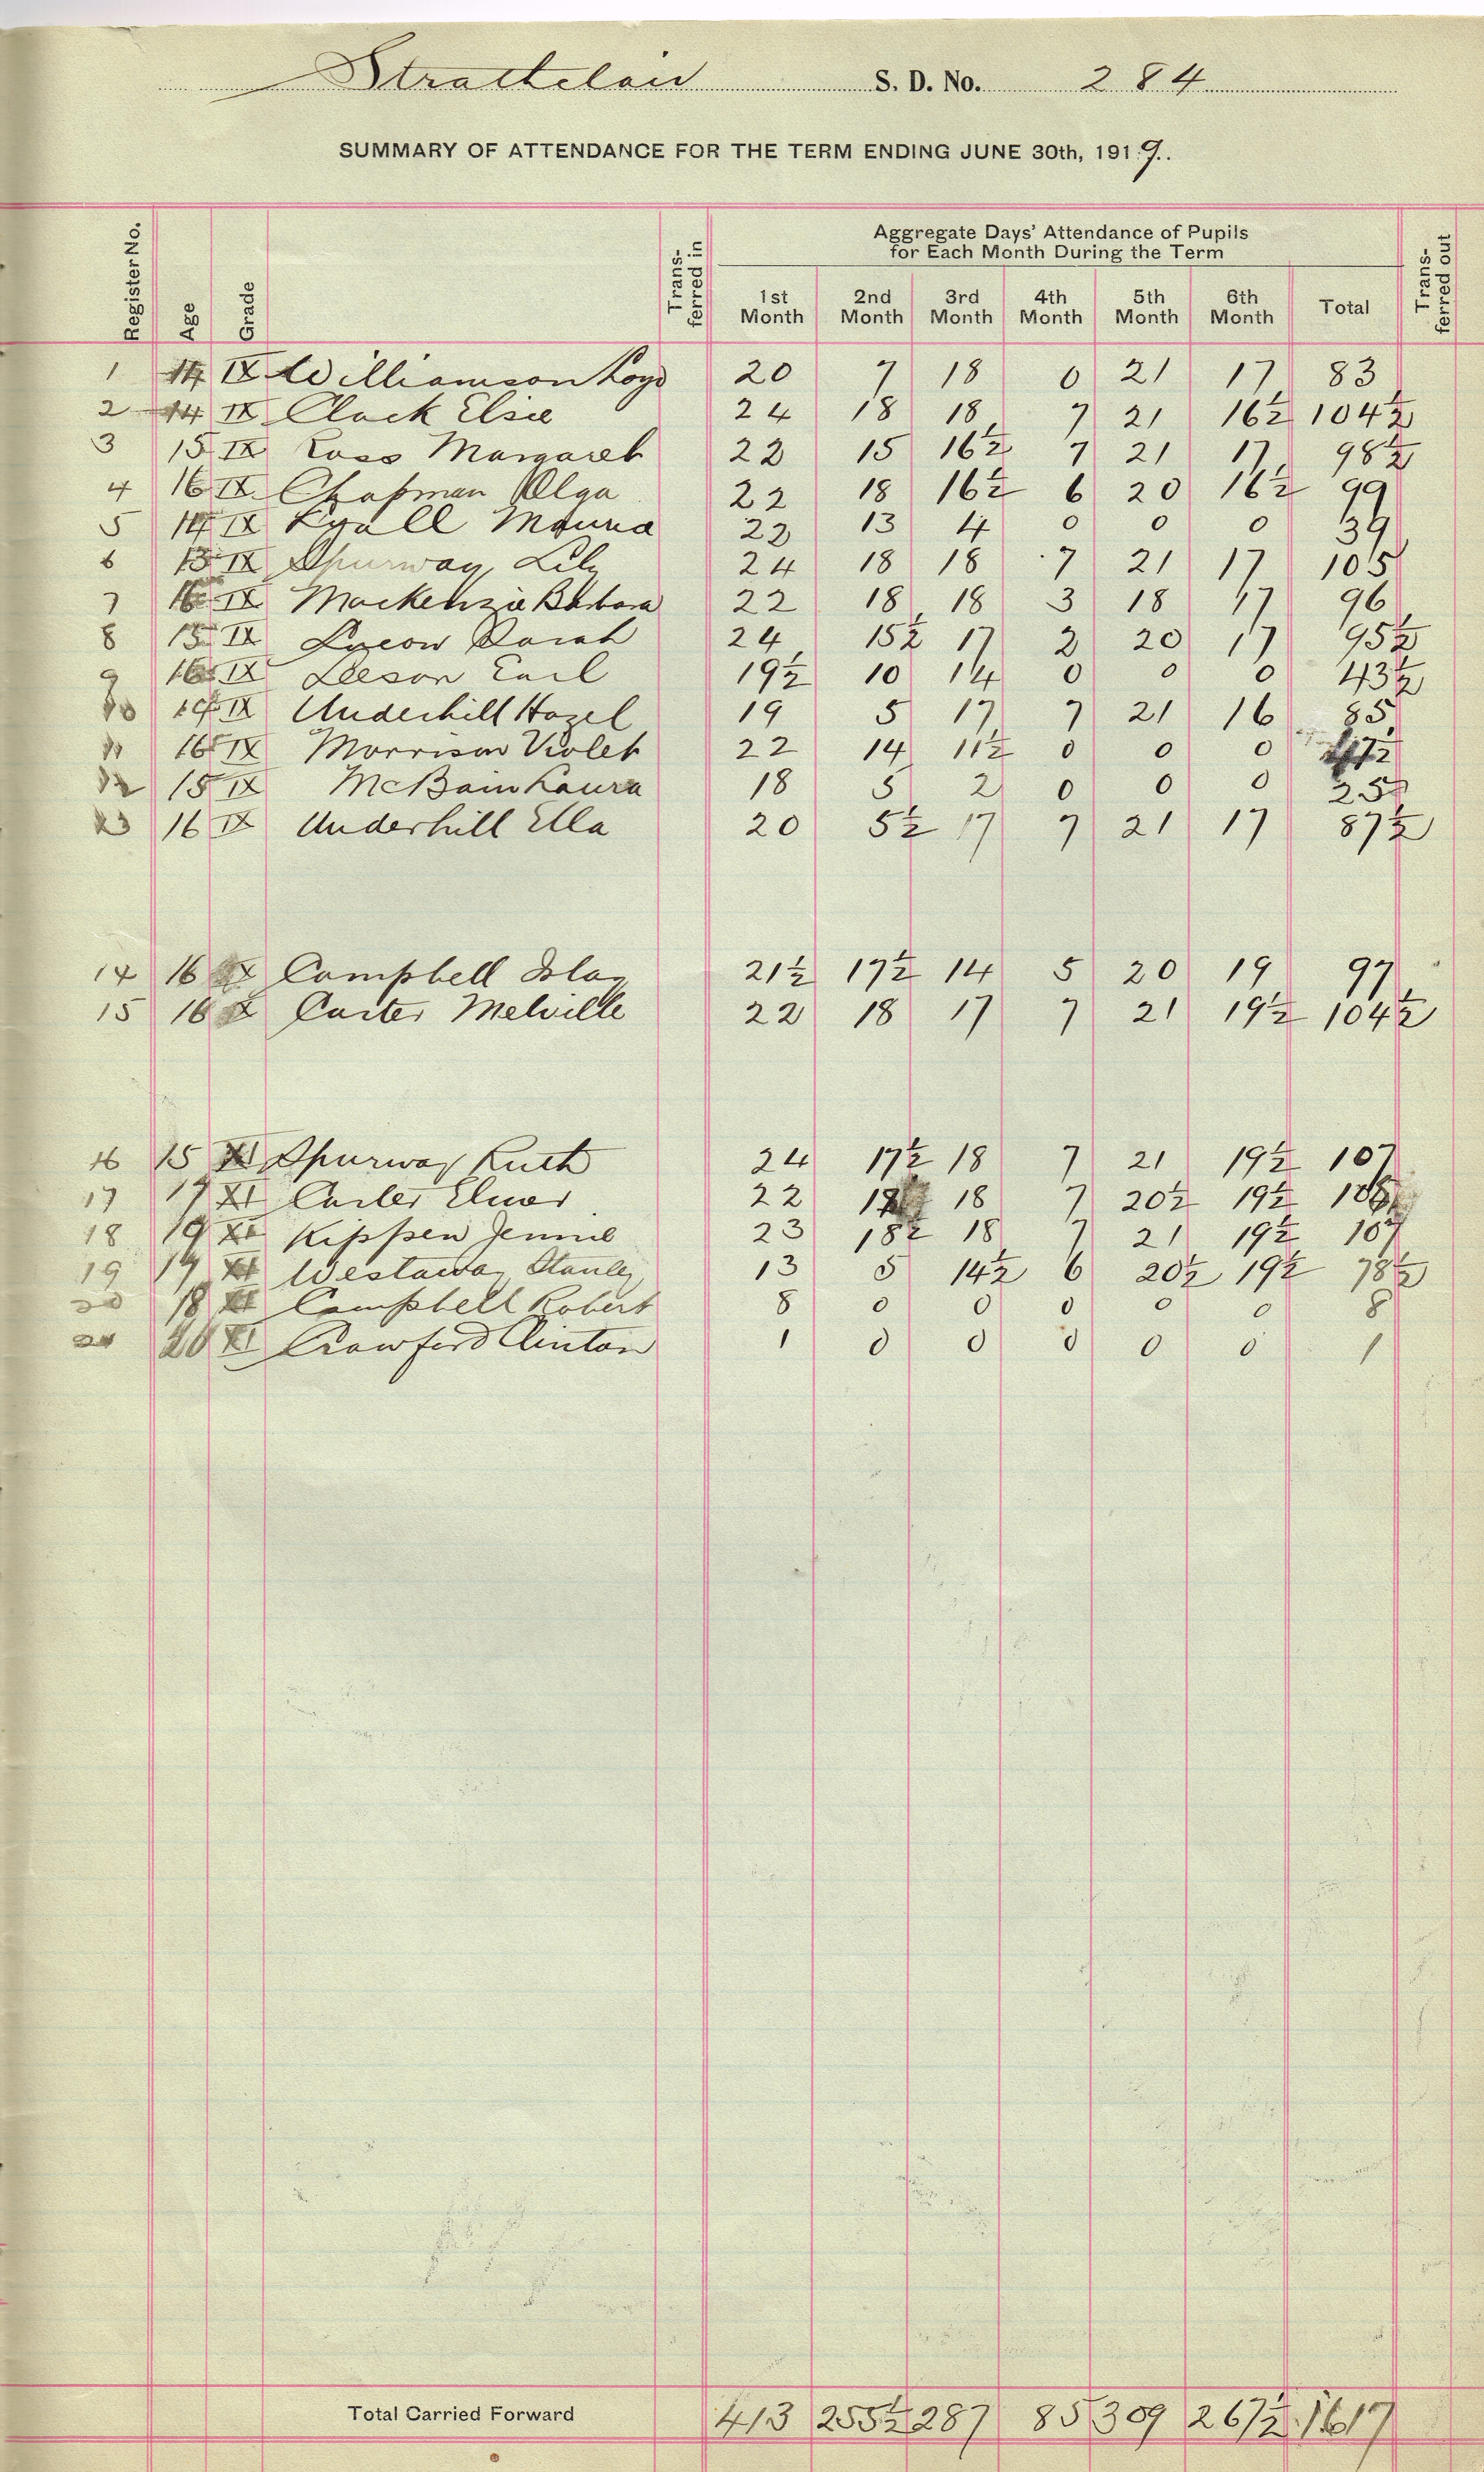 Strathclair S. D. No. 284
SUMMARY OF ATTENDANCE FOR THE TERM ENDING JUNE 30th, 1919.
Register No. Age Grade Trans- ferred in Aggregate Days' Attendance of Pupils for Each Month During the Term Trans- ferred out
1st Month 2nd Month 3rd Month 4th Month 5th Month 6th Month Total
1 14 IX Williamson 20 7 18 0 21 17 83
2 14 IX Clack Elsie 24 18 18 7 21 16½ 104½
3 15 IX Ross Margaret 22 15 16½ 7 21 17 98½
4 16 IX Chapman Olga 22 18 16½ 6 20 16½ 99
5 14 IX Lyall 22 13 4 0 0 0 39
6 IX Spurway Lily 24 18 18 7 21 17 105
7 16 IX Mackenzie Barbara 22 18 18 3 18 17 96
8 15 IX Sarah 24 15½ 17 2 20 17 95½
9 16 IX Leeson Earl 19½ 10 14 0 0 0 43½
10 IX Underhill Hazel 19 5 17 7 21 16 85
11 16 IX Morrison Violet 22 14 11½ 0 0 0 47½
12 15 IX McBain Laura 18 5 2 0 0 0 25
13 16 IX Underhill Ella 20 5½ 17 7 21 17 87½
14 16 X Campbell Islay 21½ 17½ 14 5 20 19 97
15 16 X Carter Melville 22 18 17 7 21 19½ 104½
16 15 XI Spurway Ruth 24 17½ 18 7 21 19½ 107
17 17 XI Carter Elmer 22 18 7 20½ 19½
18 19 XI Kippen Jennie 23 18½ 18 7 21 19½ 107
19 XI Westaway Stanley 13 5 14½ 6 20½ 19½ 78½
20 18 XI Campbell Robert 8 0 0 0 0 0 8
20 XI Crawford Clinton 1 0 0 0 0 0 1
Total Carried Forward 413 255½ 287 85 309 267½ 1617